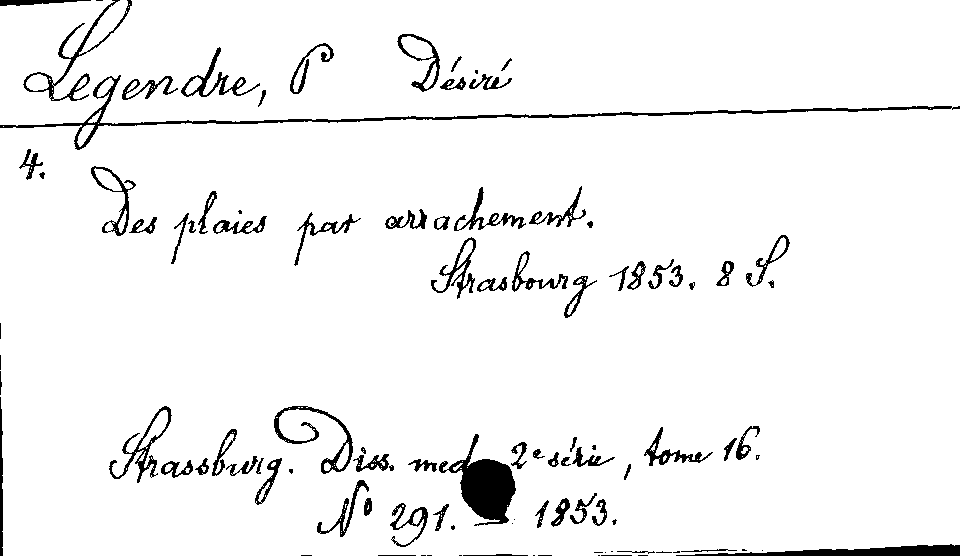 Legendre, P Désiré
4.
Des plaies par arrachement.
Strasbourg 1853. 8 S.
Strassburg. Diss. med 2e série, tome 16.
No 291. — 1853.